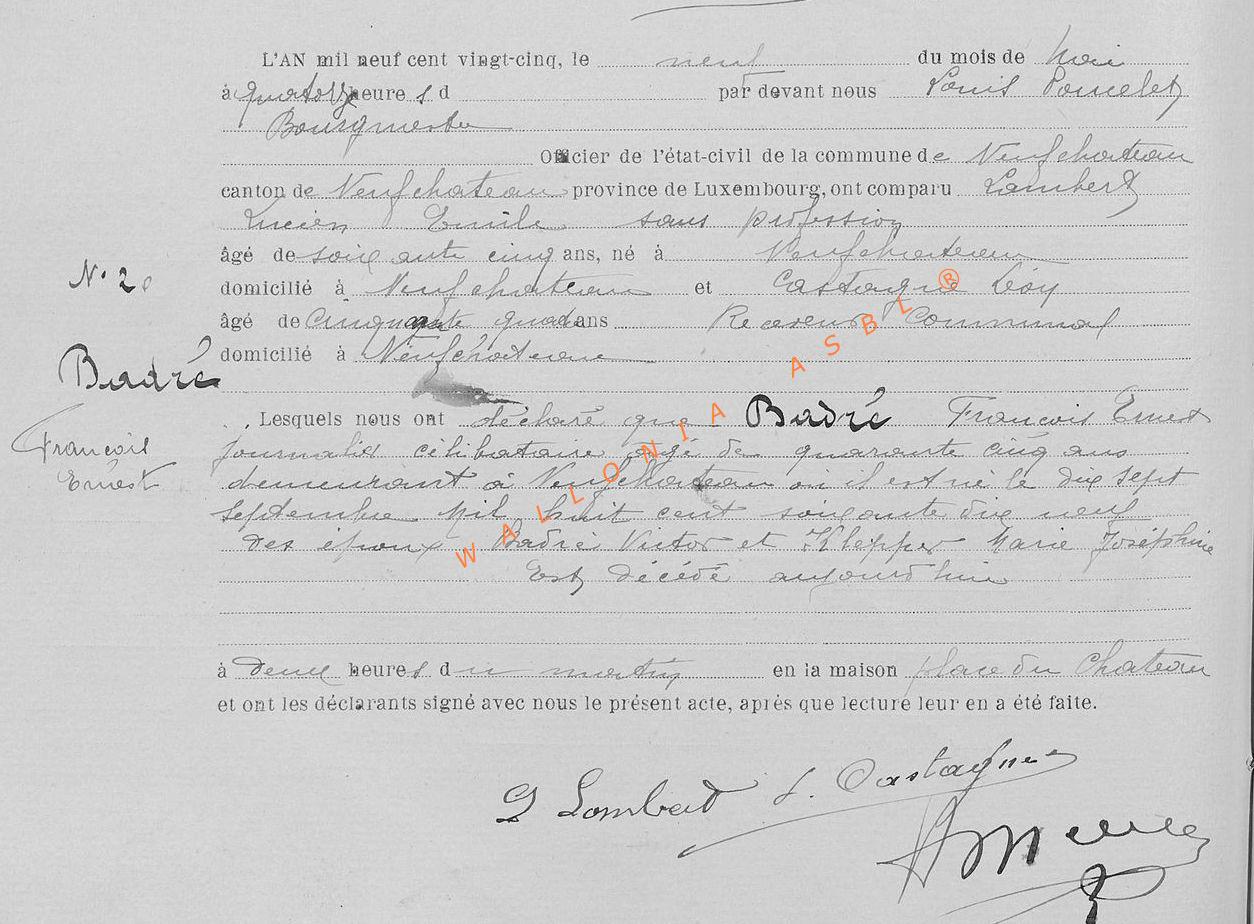 L'AN mil neuf cent vingt-cinq, le neuf du mois de Mai
à quatorze heure s d par devant nous Louis
Bourgmestre
Officier de l'état-civil de la commune de Neufchateau
canton de Neufchateau province de Luxembourg, ont comparu Lambert
Lucien Emile sans profession
âgé de soixante cinq ans, né à Neufchateau
N° 20
domicilié à Neufchateau et Castagne Léon
âgé de Cinquante quatre ans Receveur Communal
domicilié à Neufchateau
Badré
François
Ernest
Lesquels nous ont déclaré que Badré François Ernest
journalier célibataire agé de quarante cinq ans
demeurant à Neufchateau où il est né le dix sept
septembre mil huit cent soixante dix neuf
des époux Badré Victor et Klepper Marie Joséphine
Est décédé aujourd'hui
à Deux heures du matin en la maison place du Chateau
et ont les déclarants signé avec nous le présent acte, après que lecture leur en a été faite.
L Lambert L. Castagne
WALLONIA ASBL ®